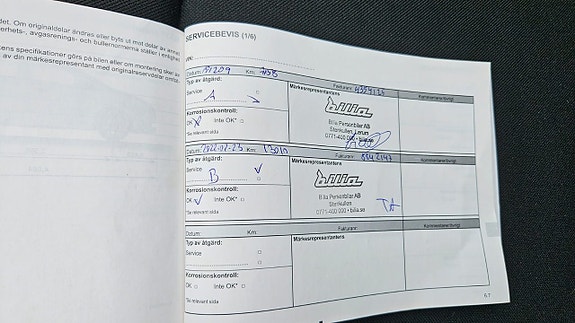 det. Om originaldelar ändras eller byts ut mot delar av annat
erhets-, avgasrenings- och bullernormerna ställer i enlighet
tens specifikationer görs på bilen eller om montering sker av
av din märkesrepresentant med originalreservdelar omfat-
SERVICEBEVIS (1/6)
Datum: Km: Fakturanr: Kommentarer/övrigt
Typ av åtgärd: Märkesrepresentantens
Service
A
bilia
Bilia Personbilar AB
Stenkullen, Lerum
0771-400 000 • bilia.se
Korrosionskontroll:
OK Inte OK*
*Se relevant sida
Datum: 2022-02-23 Km: Fakturanr: Kommentarer/övrigt
Typ av åtgärd: Märkesrepresentantens
Service
B
bilia
Bilia Personbilar AB
Stenkullen
0771-400 000 • bilia.se
Korrosionskontroll:
OK Inte OK*
*Se relevant sida
Datum: Km: Fakturanr: Kommentarer/övrigt
Typ av åtgärd: Märkesrepresentantens
Service
Korrosionskontroll:
OK Inte OK*
*Se relevant sida
6.7